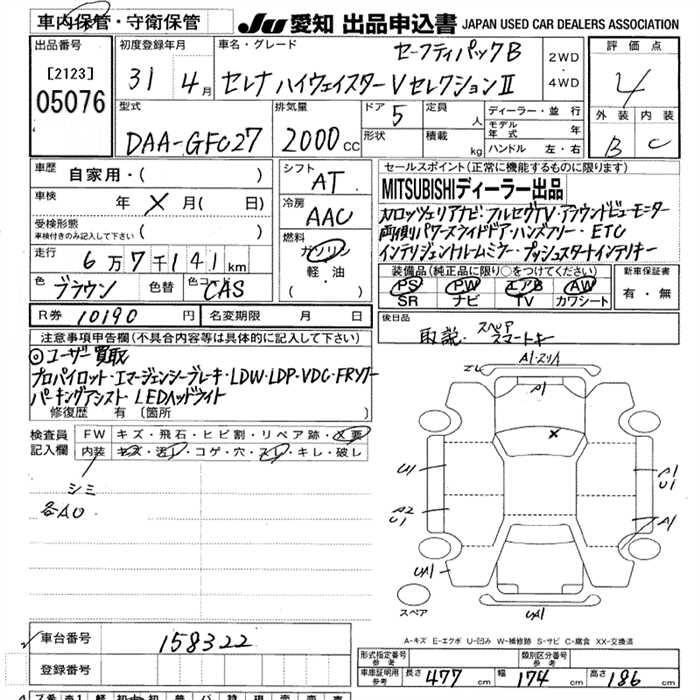 車内保管・守衛保管
JU 愛知 出品申込書 JAPAN USED CAR DEALERS ASSOCIATION
出品番号
[2123]
05076
初度登録年月
31 4月
車名・グレード
セーフティパックB
セレナ ハイウェイスターVセレクションII
2WD
・
4WD
評価点
4
外装 内装
B C
型式
DAA-GFC27
排気量
2000 cc
ドア 5
形状
定員 人
積載 kg
ディーラー・並行
モデル年式 年
ハンドル 左・右
車歴
自家用・( )
車検
年 X 月( 日)
受検形態
車検付きのみ記入して下さい
( )
走行
6万7千141km
色 ブラウン
色替
色コ CAS
シフト
AT
冷房
AAC
燃料
ガソリン
軽・油
( )
セールスポイント(正常に機能するものに限ります)
MITSUBISHIディーラー出品
カロッツェリアナビ・フルセグTV・アラウンドビューモニター
両側パワースライドドア ハンズフリー・ETC
インテリジェントルームミラー・プッシュスタートインテリキー
装備品(純正品に限り○をつけてください)
PS PW エアB AW
SR ナビ TV カワシート
新車保証書
有・無
R券 10190 円
名変期限 月 日
後日品
取説・スペアスマートキー
注意事項申告欄(不具合内容等は具体的に記入して下さい)
◎ユーザー買取
プロパイロット・エマージェンシーブレーキ・LDW・LDP・VDC・FRソナー
パーキングアシスト・LEDヘッドライト
修復歴 有〔箇所 〕
検査員記入欄
FW キズ・飛石・ヒビ割・リペア跡・X要
内装 キズ・汚レ・コゲ・穴・スレ・キレ・破レ
シミ
各AU
A1・スリA
A1
X
U1
A2
U1
A1
U1
A1
UA1
UA1
スペア
A-キズ E-エクボ U-凹み W-補修跡 S-サビ C-腐食 XX-交換済
車台番号 158322
登録番号
形式指定番号 参考
類別区分番号 参考
車庫証明用 参考
長さ 477 cm
幅 174 cm
高さ 186 cm